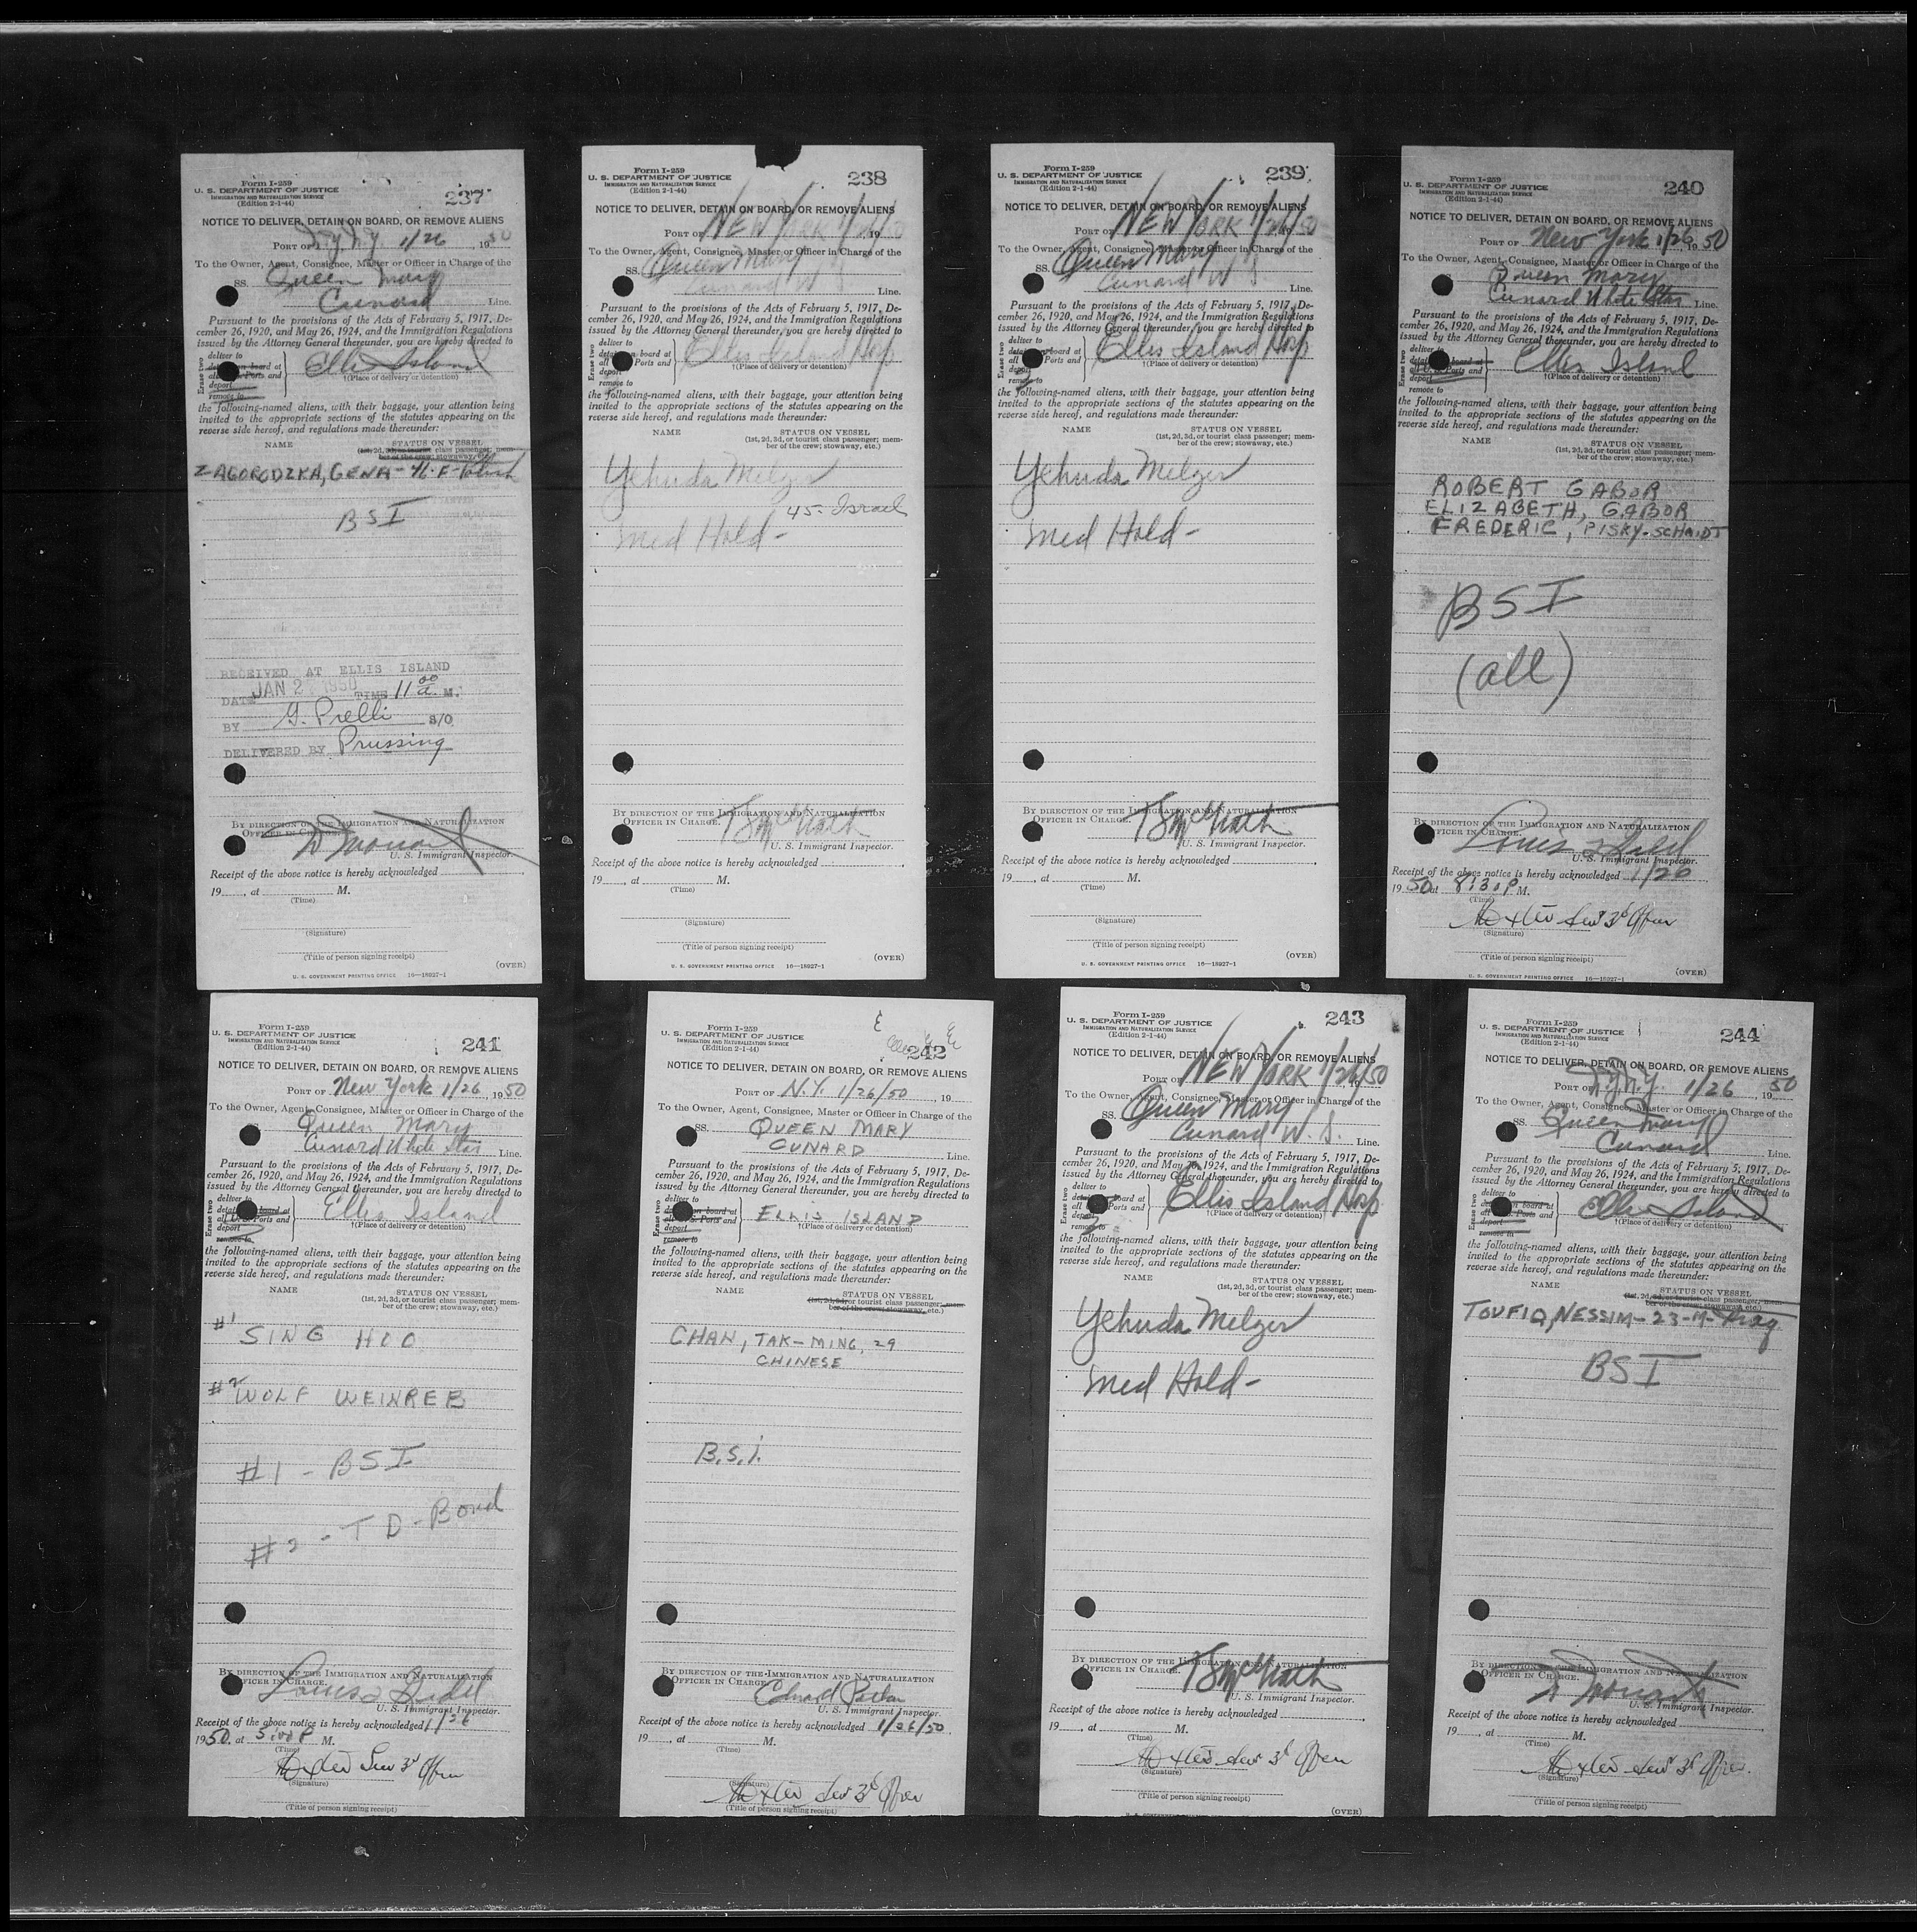 Form I-259
U. S. DEPARTMENT OF JUSTICE
IMMIGRATION AND NATURALIZATION SERVICE
(Edition 2-1-44)
237
NOTICE TO DELIVER, DETAIN ON BOARD, OR REMOVE ALIENS
PORT OF N.Y. N.Y. 1/26, 1950
To the Owner, Agent, Consignee, Master or Officer in Charge of the
SS. Queen Mary
Cunard Line.
Pursuant to the provisions of the Acts of February 5, 1917, De-
cember 26, 1920, and May 26, 1924, and the Immigration Regulations
issued by the Attorney General thereunder, you are hereby directed to
Erase two
deliver to
on board at
Ports and
deport
remove to
Ellis Island
†(Place of delivery or detention)
the following-named aliens, with their baggage, your attention being
invited to the appropriate sections of the statutes appearing on the
reverse side hereof, and regulations made thereunder:
NAME STATUS ON VESSEL
(1st, 2d, 3d, or tourist class passenger; mem-
ber of the crew; stowaway, etc.)
ZAGORODZKA, GENA - 41-F-Polish
BSI
RECEIVED AT ELLIS ISLAND
DATE JAN 2 1950 TIME 11 00 A. M.
BY G. Prelli S/O
DELIVERED BY Prussing
BY DIRECTION OF THE IMMIGRATION AND NATURALIZATION
OFFICER IN CHARGE.
U. S. Immigrant Inspector.
Receipt of the above notice is hereby acknowledged
19, at M.
(Time)
(Signature)
(Title of person signing receipt)
(OVER)
U. S. GOVERNMENT PRINTING OFFICE 16—18927-1
Form I-259
U. S. DEPARTMENT OF JUSTICE
IMMIGRATION AND NATURALIZATION SERVICE
(Edition 2-1-44)
238
NOTICE TO DELIVER, DETAIN ON BOARD, OR REMOVE ALIENS
PORT OF NEW YORK 1/26/50, 19
To the Owner, Agent, Consignee, Master or Officer in Charge of the
SS. Queen Mary
Cunard W S Line.
Pursuant to the provisions of the Acts of February 5, 1917, De-
cember 26, 1920, and May 26, 1924, and the Immigration Regulations
issued by the Attorney General thereunder, you are hereby directed to
Erase two
deliver to
detain on board at
all Ports and
deport
remove to
Ellis Island Hosp
†(Place of delivery or detention)
the following-named aliens, with their baggage, your attention being
invited to the appropriate sections of the statutes appearing on the
reverse side hereof, and regulations made thereunder:
NAME STATUS ON VESSEL
(1st, 2d, 3d, or tourist class passenger; mem-
ber of the crew; stowaway, etc.)
Yehuda Melzer
45- Israel
Med Hold -
BY DIRECTION OF THE IMMIGRATION AND NATURALIZATION
OFFICER IN CHARGE.
U. S. Immigrant Inspector.
Receipt of the above notice is hereby acknowledged
19, at M.
(Time)
(Signature)
(Title of person signing receipt)
(OVER)
U. S. GOVERNMENT PRINTING OFFICE 16—18927-1
Form I-259
U. S. DEPARTMENT OF JUSTICE
IMMIGRATION AND NATURALIZATION SERVICE
(Edition 2-1-44)
239
NOTICE TO DELIVER, DETAIN ON BOARD, OR REMOVE ALIENS
PORT OF NEW YORK 1/26/50
To the Owner, Agent, Consignee, Master or Officer in Charge of the
SS. Queen Mary
Cunard W S Line.
Pursuant to the provisions of the Acts of February 5, 1917, De-
cember 26, 1920, and May 26, 1924, and the Immigration Regulations
issued by the Attorney General thereunder, you are hereby directed to
Erase two
deliver to
board at
all Ports and
deport
remove to
Ellis Island Hosp
†(Place of delivery or detention)
the following-named aliens, with their baggage, your attention being
invited to the appropriate sections of the statutes appearing on the
reverse side hereof, and regulations made thereunder:
NAME STATUS ON VESSEL
(1st, 2d, 3d, or tourist class passenger; mem-
ber of the crew; stowaway, etc.)
Yehuda Melzer
Med Hold -
BY DIRECTION OF THE IMMIGRATION AND NATURALIZATION
OFFICER IN CHARGE.
U. S. Immigrant Inspector.
Receipt of the above notice is hereby acknowledged
19, at M.
(Time)
(Signature)
(Title of person signing receipt)
(OVER)
U. S. GOVERNMENT PRINTING OFFICE 16—18927-1
Form I-259
U. S. DEPARTMENT OF JUSTICE
IMMIGRATION AND NATURALIZATION SERVICE
(Edition 2-1-44)
240
NOTICE TO DELIVER, DETAIN ON BOARD, OR REMOVE ALIENS
PORT OF New York 1/26, 1950
To the Owner, Agent, Consignee, Master or Officer in Charge of the
Queen Mary
Cunard White Star Line.
Pursuant to the provisions of the Acts of February 5, 1917, De-
cember 26, 1920, and May 26, 1924, and the Immigration Regulations
issued by the Attorney General thereunder, you are hereby directed to
Erase two
deliver to
board at
Ports and
deport
remove to
Ellis Island
†(Place of delivery or detention)
the following-named aliens, with their baggage, your attention being
invited to the appropriate sections of the statutes appearing on the
reverse side hereof, and regulations made thereunder:
NAME STATUS ON VESSEL
(1st, 2d, 3d, or tourist class passenger; mem-
ber of the crew; stowaway, etc.)
ROBERT GABOR
ELIZABETH, GABOR
FREDERIC, PISKY-SCHMIDT
BSI
(all)
BY DIRECTION OF THE IMMIGRATION AND NATURALIZATION
OFFICER IN CHARGE.
U. S. Immigrant Inspector.
Receipt of the above notice is hereby acknowledged 1/26
1950 at 8:30 P M.
(Time)
(Signature)
(Title of person signing receipt)
(OVER)
U. S. GOVERNMENT PRINTING OFFICE 16—18927-1
Form I-259
U. S. DEPARTMENT OF JUSTICE
IMMIGRATION AND NATURALIZATION SERVICE
(Edition 2-1-44)
241
NOTICE TO DELIVER, DETAIN ON BOARD, OR REMOVE ALIENS
PORT OF New York 1/26, 1950
To the Owner, Agent, Consignee, Master or Officer in Charge of the
Queen Mary
Cunard White Star Line.
Pursuant to the provisions of the Acts of February 5, 1917, De-
cember 26, 1920, and May 26, 1924, and the Immigration Regulations
issued by the Attorney General thereunder, you are hereby directed to
Erase two
deliver to
board at
Ports and
deport
remove to
Ellis Island
†(Place of delivery or detention)
the following-named aliens, with their baggage, your attention being
invited to the appropriate sections of the statutes appearing on the
reverse side hereof, and regulations made thereunder:
NAME STATUS ON VESSEL
(1st, 2d, 3d, or tourist class passenger; mem-
ber of the crew; stowaway, etc.)
#1 SING HOO
#2 WOLF WEINREB
#1 - BSI
#2 - T D - Bond
BY DIRECTION OF THE IMMIGRATION AND NATURALIZATION
OFFICER IN CHARGE.
U. S. Immigrant Inspector.
Receipt of the above notice is hereby acknowledged 1/26
1950, at 5:00 P M.
(Time)
(Signature)
(Title of person signing receipt)
Form I-259
U. S. DEPARTMENT OF JUSTICE
IMMIGRATION AND NATURALIZATION SERVICE
(Edition 2-1-44)
242
NOTICE TO DELIVER, DETAIN ON BOARD, OR REMOVE ALIENS
PORT OF N.Y. 1/26/50, 19
To the Owner, Agent, Consignee, Master or Officer in Charge of the
SS. QUEEN MARY
CUNARD Line.
Pursuant to the provisions of the Acts of February 5, 1917, De-
cember 26, 1920, and May 26, 1924, and the Immigration Regulations
issued by the Attorney General thereunder, you are hereby directed to
Erase two
deliver to
on board at
Ports and
deport
remove to
ELLIS ISLAND
†(Place of delivery or detention)
the following-named aliens, with their baggage, your attention being
invited to the appropriate sections of the statutes appearing on the
reverse side hereof, and regulations made thereunder:
NAME STATUS ON VESSEL
(1st, 2d, 3d, or tourist class passenger; mem-
ber of the crew; stowaway, etc.)
CHAN, TAK-MING, 29
CHINESE
B.S.I.
BY DIRECTION OF THE IMMIGRATION AND NATURALIZATION
OFFICER IN CHARGE.
U. S. Immigrant Inspector.
Receipt of the above notice is hereby acknowledged 1/26/50
19, at M.
(Time)
(Signature)
(Title of person signing receipt)
Form I-259
U. S. DEPARTMENT OF JUSTICE
IMMIGRATION AND NATURALIZATION SERVICE
(Edition 2-1-44)
243
NOTICE TO DELIVER, DETAIN ON BOARD, OR REMOVE ALIENS
PORT OF NEW YORK 1/26/50
To the Owner, Agent, Consignee, Master or Officer in Charge of the
SS. Queen Mary
Cunard W. S. Line.
Pursuant to the provisions of the Acts of February 5, 1917, De-
cember 26, 1920, and May 26, 1924, and the Immigration Regulations
issued by the Attorney General thereunder, you are hereby directed to
Erase two
deliver to
board at
all Ports and
deport
remove to
Ellis Island Hosp
†(Place of delivery or detention)
the following-named aliens, with their baggage, your attention being
invited to the appropriate sections of the statutes appearing on the
reverse side hereof, and regulations made thereunder:
NAME STATUS ON VESSEL
(1st, 2d, 3d, or tourist class passenger; mem-
ber of the crew; stowaway, etc.)
Yehuda Melzer
Med Hold -
BY DIRECTION OF THE IMMIGRATION AND NATURALIZATION
OFFICER IN CHARGE.
U. S. Immigrant Inspector.
Receipt of the above notice is hereby acknowledged
19, at M.
(Time)
(Signature)
(Title of person signing receipt)
(OVER)
Form I-259
U. S. DEPARTMENT OF JUSTICE
IMMIGRATION AND NATURALIZATION SERVICE
(Edition 2-1-44)
244
NOTICE TO DELIVER, DETAIN ON BOARD, OR REMOVE ALIENS
PORT OF N.Y. N.Y. 1/26, 1950
To the Owner, Agent, Consignee, Master or Officer in Charge of the
SS. Queen Mary
Cunard Line.
Pursuant to the provisions of the Acts of February 5, 1917, De-
cember 26, 1920, and May 26, 1924, and the Immigration Regulations
issued by the Attorney General thereunder, you are hereby directed to
Erase two
deliver to
on board at
Ports and
deport
remove to
Ellis Island
†(Place of delivery or detention)
the following-named aliens, with their baggage, your attention being
invited to the appropriate sections of the statutes appearing on the
reverse side hereof, and regulations made thereunder:
NAME STATUS ON VESSEL
(1st, 2d, 3d, or tourist class passenger; mem-
ber of the crew; stowaway, etc.)
TOUFIQ, NESSIM - 23-M- Iraq
BSI
BY DIRECTION OF THE IMMIGRATION AND NATURALIZATION
OFFICER IN CHARGE.
U. S. Immigrant Inspector.
Receipt of the above notice is hereby acknowledged
19, at M.
(Time)
(Signature)
(Title of person signing receipt)